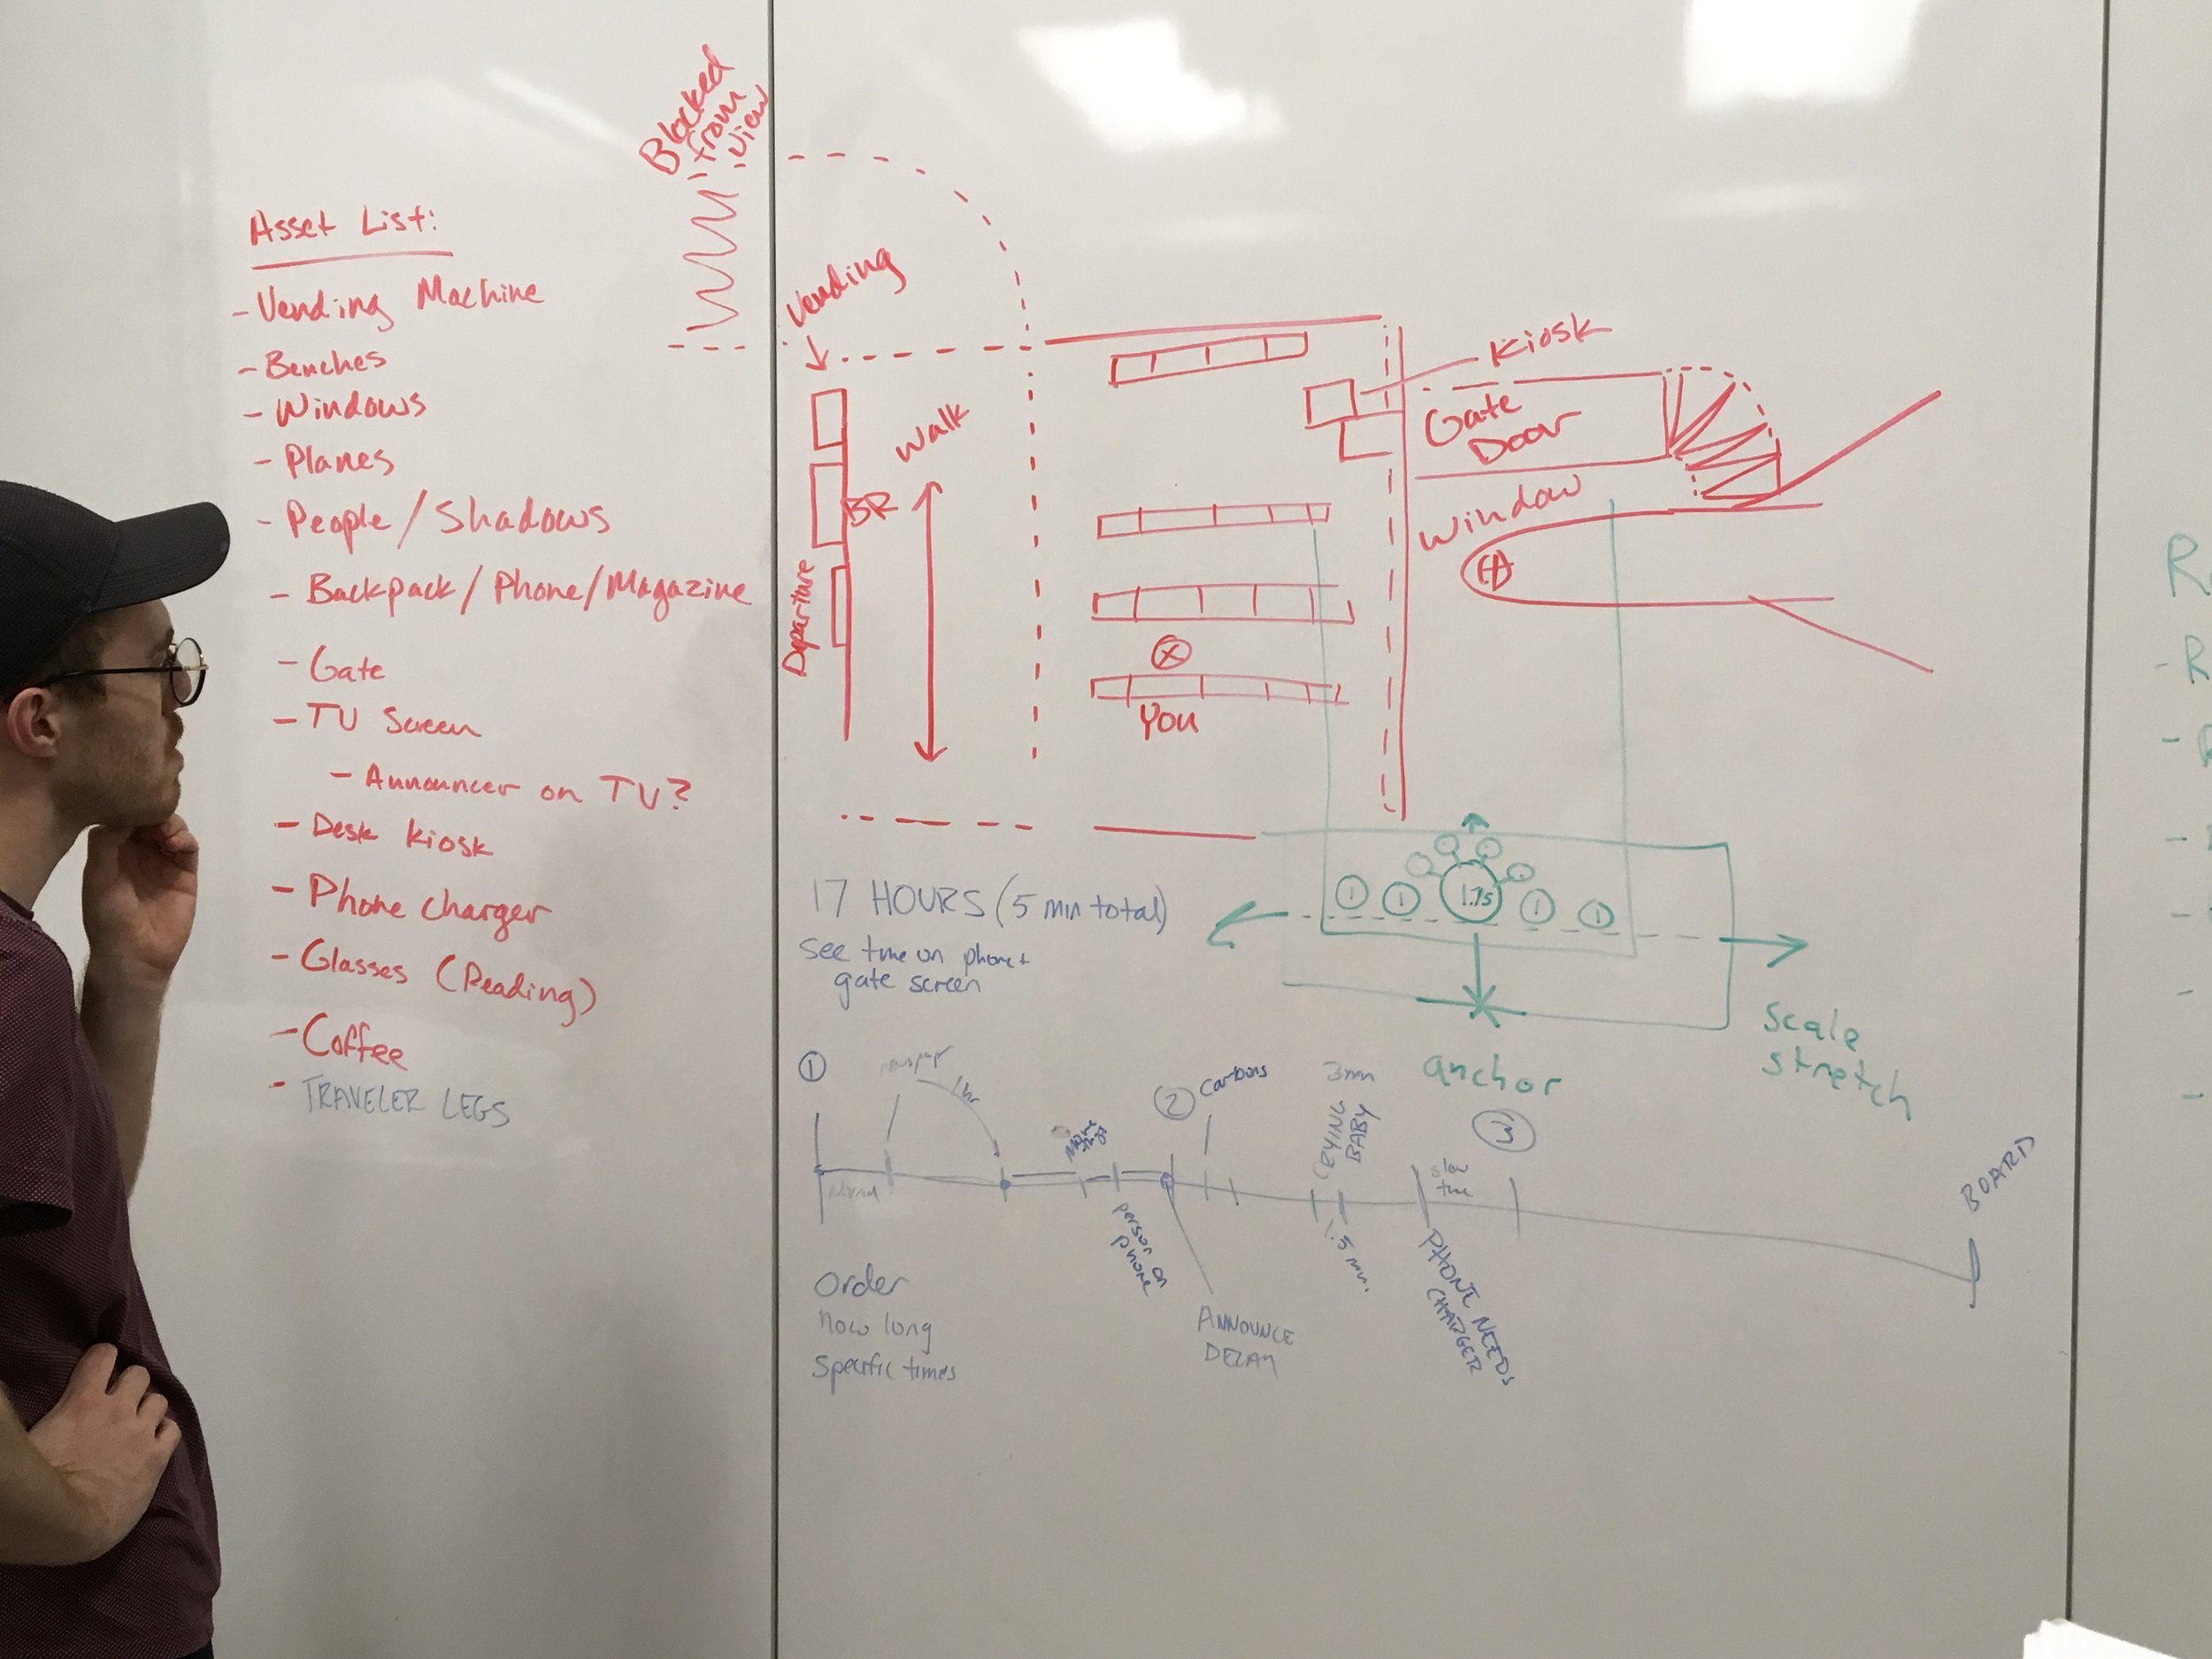 Asset List:
- Vending Machine
- Benches
- Windows
- Planes
- People / Shadows
- Backpack / Phone / Magazine
- Gate
- TV Screen
- Announcer on TV?
- Desk Kiosk
- Phone charger
- Glasses (Reading)
- Coffee
- TRAVELER LEGS
Blocked
from
view
Vending
Walk
BR
Departure
You
Kiosk
Gate
Door
Window
17 HOURS (5 min total)
see time on phone +
gate screen
1
1
1.75
1
1
anchor
Scale
stretch
1
1 hr
person on
phone
2
Cartoons
ANNOUNCE
DELAY
3 min
CRYING
BABY
1.5 min.
PHONE NEEDS
CHARGER
3
BOARD
Order
how long
Specific times
R
- R
-
-
-
-
-